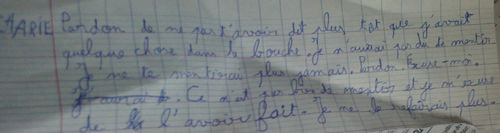 MARIE Pardon de ne pas t'avoir dit plus tot que j'avait
quelque chose dans la bouche. Je n'aurai pas du te mentir
Je ne te mentirai plus jamais. Pardon. Excuse-moi.
J'aurai . Ce n'ait pas bien de mentir et je m'excuse
de l'avoir fait. Je ne le referais plus.